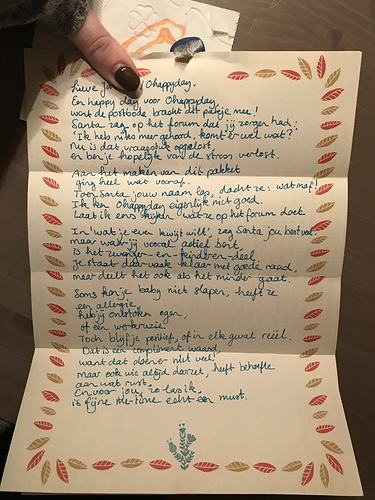 Lieve Ohappyday.
En happy day voor Ohappyday,
want de postbode bracht dit pakje mee!
Santa zag op het forum dat jij zorgen had:
"Ik heb niks meer gehoord, komt er wel wat?"
Nu is dat vraagstuk opgelost,
en ben je hopelijk van de stress verlost.
Aan het maken van dit pakket
ging heel wat vooraf.
Toen Santa jouw naam las, dacht ze: wat maf!
Ik ken Ohappyday eigenlijk niet goed.
Laat ik eens kijken wat ze op het forum doet.
In 'wat je even kwijt wilt', zag Santa jou best veel.
maar waar jij vooral actief bent,
is het zwanger- en -kinderen-deel.
Je staat daar vaak klaar met goede raad,
maar deelt het ook als het minder gaat.
Soms kan je baby niet slapen, heeft ze
een allergie,
heb jij ontstoken ogen,
of een
Toch blijf je positief, of in elk geval reëel.
Dat is een compliment waard,
want dat doen er niet veel!
maar ook wie altijd doorzet, heeft behoefte
aan wat rust,
En voor jou, zo las ik,
is fijne me-time echt een must.